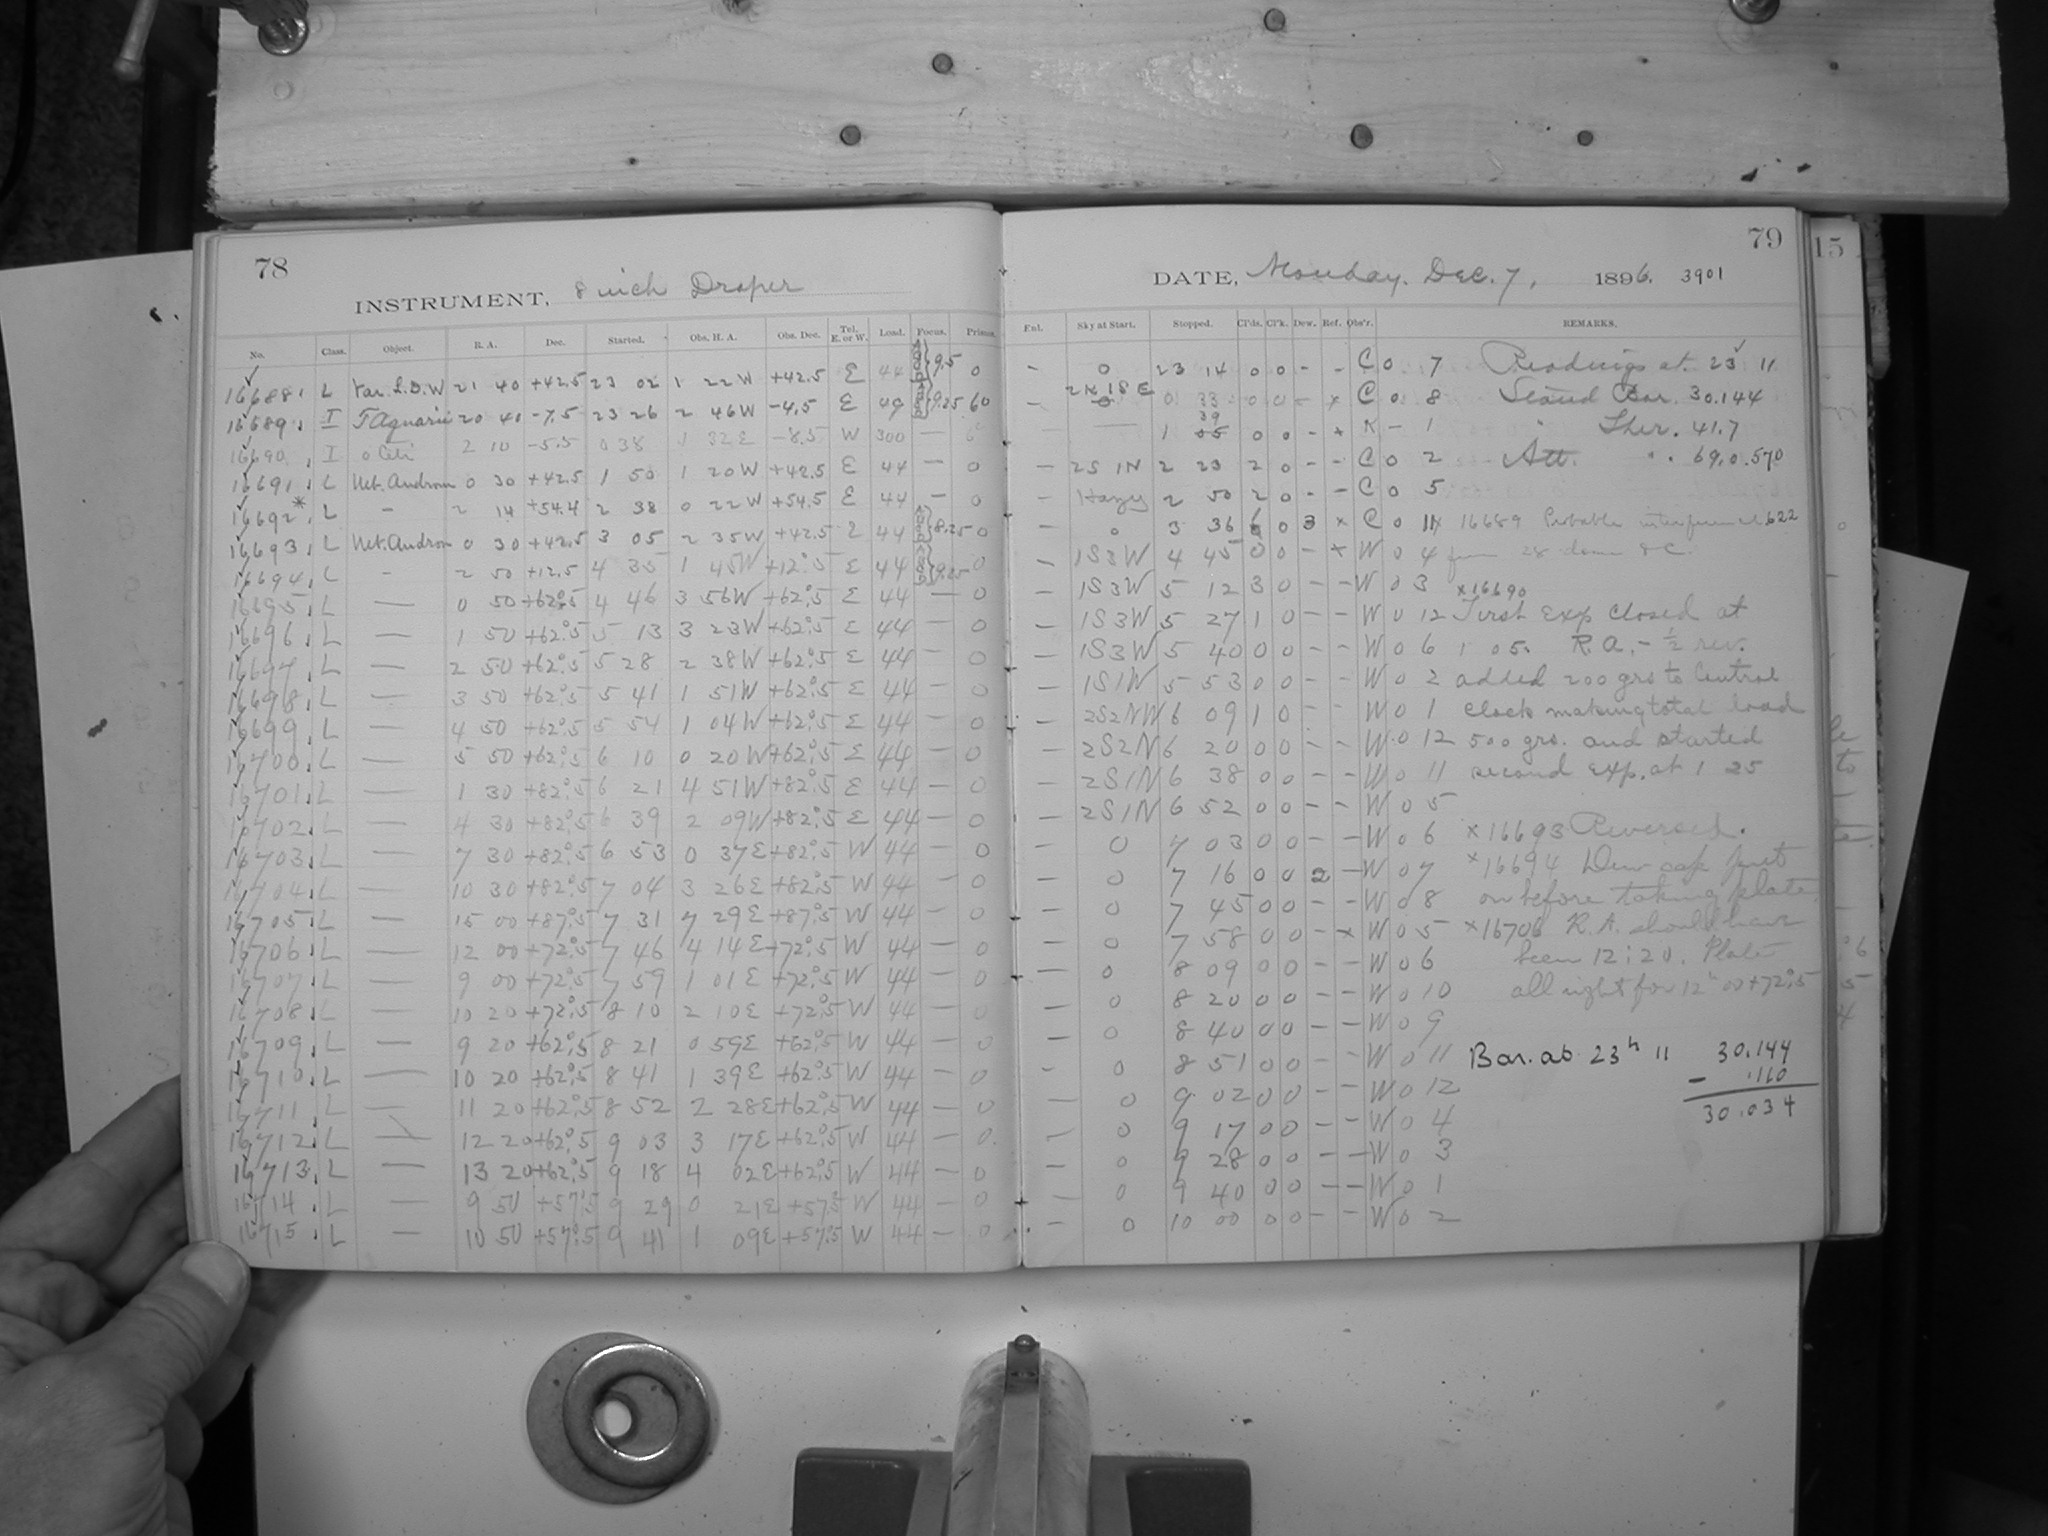 78
INSTRUMENT, 8 inch Draper
No. Class. Object. R. A. Dec. Started. Obs. H. A. Obs. Dec. Tel. E. or W. Load. Focus. Prisms.
16688 L Var. S.D.W 21 40 +42.5 23 02 1 22W +42.5 E 44 9.5 0
16689 I T Aquarii 20 40 -7.5 23 26 2 46W -4.5 E 09 9.25 60
16690 I o Ceti 2 10 -5.5 0 38 1 32E -8.5 W 300 —
16691 L Neb. Androm 0 30 +42.5 1 50 1 20W +42.5 E 44 — 0
16692* L - 2 14 +54.4 2 38 0 22W +54.5 E 44 — 0
16693 L Neb. Androm 0 30 +42.5 3 05 2 35W +42.5 E 44 8.25 0
16694 L - 2 50 +12.5 4 35 1 45W +12.5 E 44 9.25 0
16695 L — 0 50 +62.5 4 46 3 56W +62.5 E 44 — 0
16696 L — 1 50 +62.5 5 13 3 23W +62.5 E 44 — 0
16697 L — 2 50 +62.5 5 28 2 38W +62.5 E 44 — 0
16698 L — 3 50 +62.5 5 41 1 51W +62.5 E 44 — 0
16699 L — 4 50 +62.5 5 54 1 04W +62.5 E 44 — 0
16700 L — 5 50 +62.5 6 10 0 20W +62.5 E 44 — 0
16701 L — 1 30 +82.5 6 21 4 51W +82.5 E 44 — 0
16702 L — 4 30 +82.5 6 39 2 09W +82.5 E 44 — 0
16703 L — 7 30 +82.5 6 53 0 37E +82.5 W 44 — 0
16704 L — 10 30 +82.5 7 04 3 26E +82.5 W 44 — 0
16705 L — 15 00 +87.5 7 31 7 29E +87.5 W 44 — 0
16706 L — 12 00 +72.5 7 46 4 14E +72.5 W 44 — 0
16707 L — 9 00 +72.5 7 59 1 01E +72.5 W 44 — 0
16708 L — 10 20 +72.5 8 10 2 10E +72.5 W 44 — 0
16709 L — 9 20 +62.5 8 21 0 59E +62.5 W 44 — 0
16710 L — 10 20 +62.5 8 41 1 39E +62.5 W 44 — 0
16711 L — 11 20 +62.5 8 52 2 28E +62.5 W 44 — 0
16712 L — 12 20 +62.5 9 03 3 17E +62.5 W 44 — 0
16713 L — 13 20 +62.5 9 18 4 02E +62.5 W 44 — 0
16714 L — 9 50 +57.5 9 29 0 21E +57.5 W 44 — 0
16715 L — 10 50 +57.5 9 41 1 09E +57.5 W 44 — 0
79
DATE, Monday. Dec. 7, 1896. 3901
Enl. Sky at Start. Stopped. Cl'ds. Cl'k. Dew. Ref. Obs'r. REMARKS.
- 0 23 14 0 0 - - C 0 7 Readings at 23 11
- 2N 18E 0 0 33 0 0 - x C 0 8 Stand Bar. 30.144
— 39 1 05 0 0 - x K - 1 " Ther. 41.7
- 2S 1N 2 23 2 0 - - C 0 2 Att. " . 69.0.570
- Hazy 2 50 2 0 - - C 0 5
- 0 3 36 0 3 x C 0 11 x 16689 Probable interference 622
- 1S3W 4 45 0 0 - x W 0 4 from 28 dome & C.
- 1S3W 5 12 3 0 - - W 0 3 x16690
- 1S3W 5 27 1 0 - - W 0 12 First Exp closed at
- 1S3W 5 40 0 0 - - W 0 6 1 05. R.A. - 1/2 rev.
- 1S1W 5 53 0 0 - - W 0 2 added 200 grs to Central
- 2S2NW 6 09 1 0 - - W 0 1 clock making total load
- 2S2N 6 20 0 0 - - W 0 12 500 grs. and started
- 2S1N 6 38 0 0 - - W 0 11 second exp. at 1 25
- 2S1N 6 52 0 0 - - W 0 5
- 0 7 03 0 0 - - W 0 6 x16693 Reversed.
- 0 7 16 0 0 2 - W 0 7 x16694 Dew cap put
- 0 7 45 0 0 - - W 0 8 on before taking plate
- 0 7 58 0 0 - x W 0 5 x16706 R.A. should have
- 0 8 09 0 0 - - W 0 6 been 12:20. Plate
- 0 8 20 0 0 - - W 0 10 all right for 12h 00 +72.5
- 0 8 40 0 0 - - W 0 9
- 0 8 51 0 0 - - W 0 11 Bar. at 23h 11 30.144
- 0 9 02 0 0 - - W 0 12 - .110
- 0 9 17 0 0 - - W 0 4 30.034
- 0 9 28 0 0 - - W 0 3
- 0 9 40 0 0 - - W 0 1
- 0 10 00 0 0 - - W 0 2
15